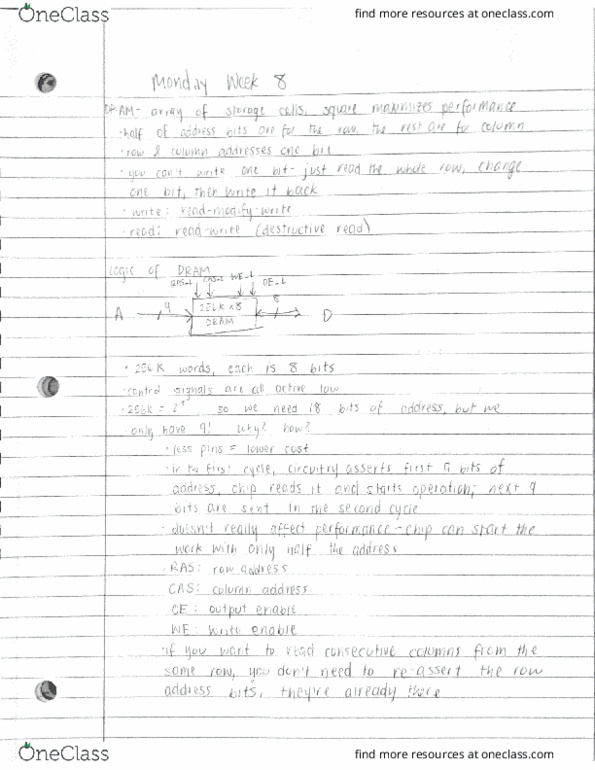 OneClass
find more resources at oneclass.com
Monday Week 8
DRAM- array of storage cells, square maximizes performance
·half of address bits are for the row, the rest are for column
·row & column addresses one bit
·you can't write one bit- just read the whole row, change
one bit, then write it back
·write: read-modify-write
·read: read-write (destructive read)
Logic of DRAM
RAS_L CAS_L WE_L OE_L
A 9 256K x8 8 D
DRAM
·256K words, each is 8 bits
·control signals are all active low
·256K = 2^18, so we need 18 bits of address, but we
only have 9! Why? How?
·less pins = lower cost
·in the first cycle, circuitry asserts first 9 bits of
address, chip reads it and starts operation; next 9
bits are sent in the second cycle
·doesn't really affect performance - chip can start the
work with only half the address
·RAS: row address
CAS: column address
OE: output enable
WE: write enable
·if you want to read consecutive columns from the
same row, you don't need to re-assert the row
address bits, they're already there
OneClass
find more resources at oneclass.com